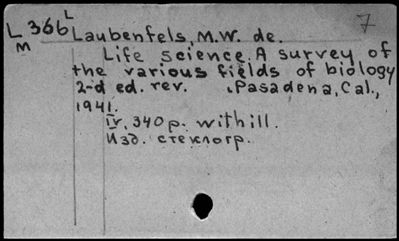 L 366 L 7
M
Laubenfels, M.W. de.
Life science. A survey of
the various fields of biology
2-d ed. rev. Pasadena, Cal.,
1941.
IV, 340 p. with ill.
Изд. стеклогр.